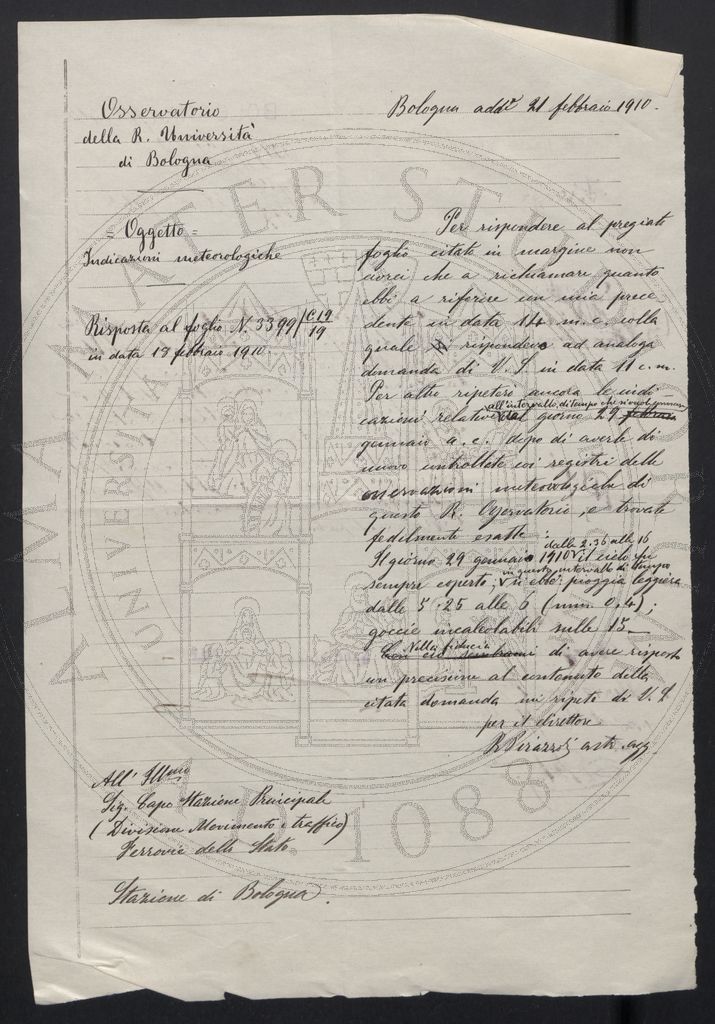 Osservatorio
della R. Università
di Bologna
Bologna addì 21 febbraio 1910.
Oggetto =
Indicazioni meteorologiche
Risposta al foglio N. 3399/C19/19
in data 18 febbraio 1910.
Per rispondere al pregiato
foglio citato in margine non
avrei che a richiamare quanto
ebbi a riferire con mia prece
dente in data 14 m. c. colla
quale rispondeva ad analoga
domanda di V. S. in data 11 c. m.
Per altro ripeterò ancora le indi
cazioni relative all'intervallo di tempo che si vuol del giorno 29 febbraio
gennaio a. c. dopo di averle di
nuovo controllate coi registri delle
osservazioni meteorologiche di
questo R. Osservatorio, e trovate
fedelmente esatte:
Il giorno 29 gennaio 1910 dalle 2.36 alle 16 il cielo fu
sempre coperto; in questo intervallo di tempo si ebbe pioggia leggiera
dalle 5.25 alle 6 (mm. 0,4);
goccie incalcolabili sulle 15.
Nella fiducia di avere risposto
con precisione al contenuto della
citata domanda mi ripeto di V. S.
per il direttore
R. Pirazzoli astr. agg.
All' Illmo
Sig. Capo Stazione Principale
(Divisione Movimento e traffico)
Ferrovie dello Stato
Stazione di Bologna.
ALMA MATER STUDIORUM
UNIVERSITÀ
A.D. 1088